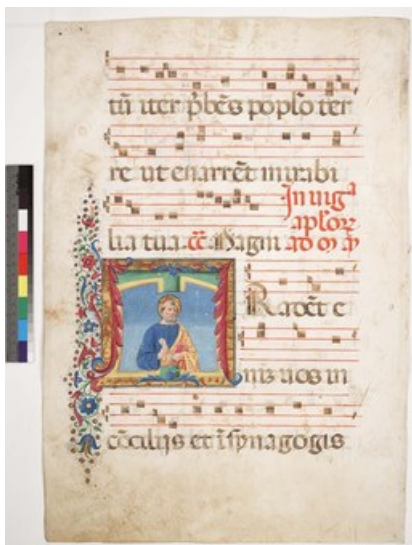 tũ iter p̃bẽs poplõ ter
re ut enarrẽt mirabi
In uigᵃ
aploꝝ
lia tua. Magni ad
Radẽt e
nĩ uos in
cõciliis et ĩ synagogis